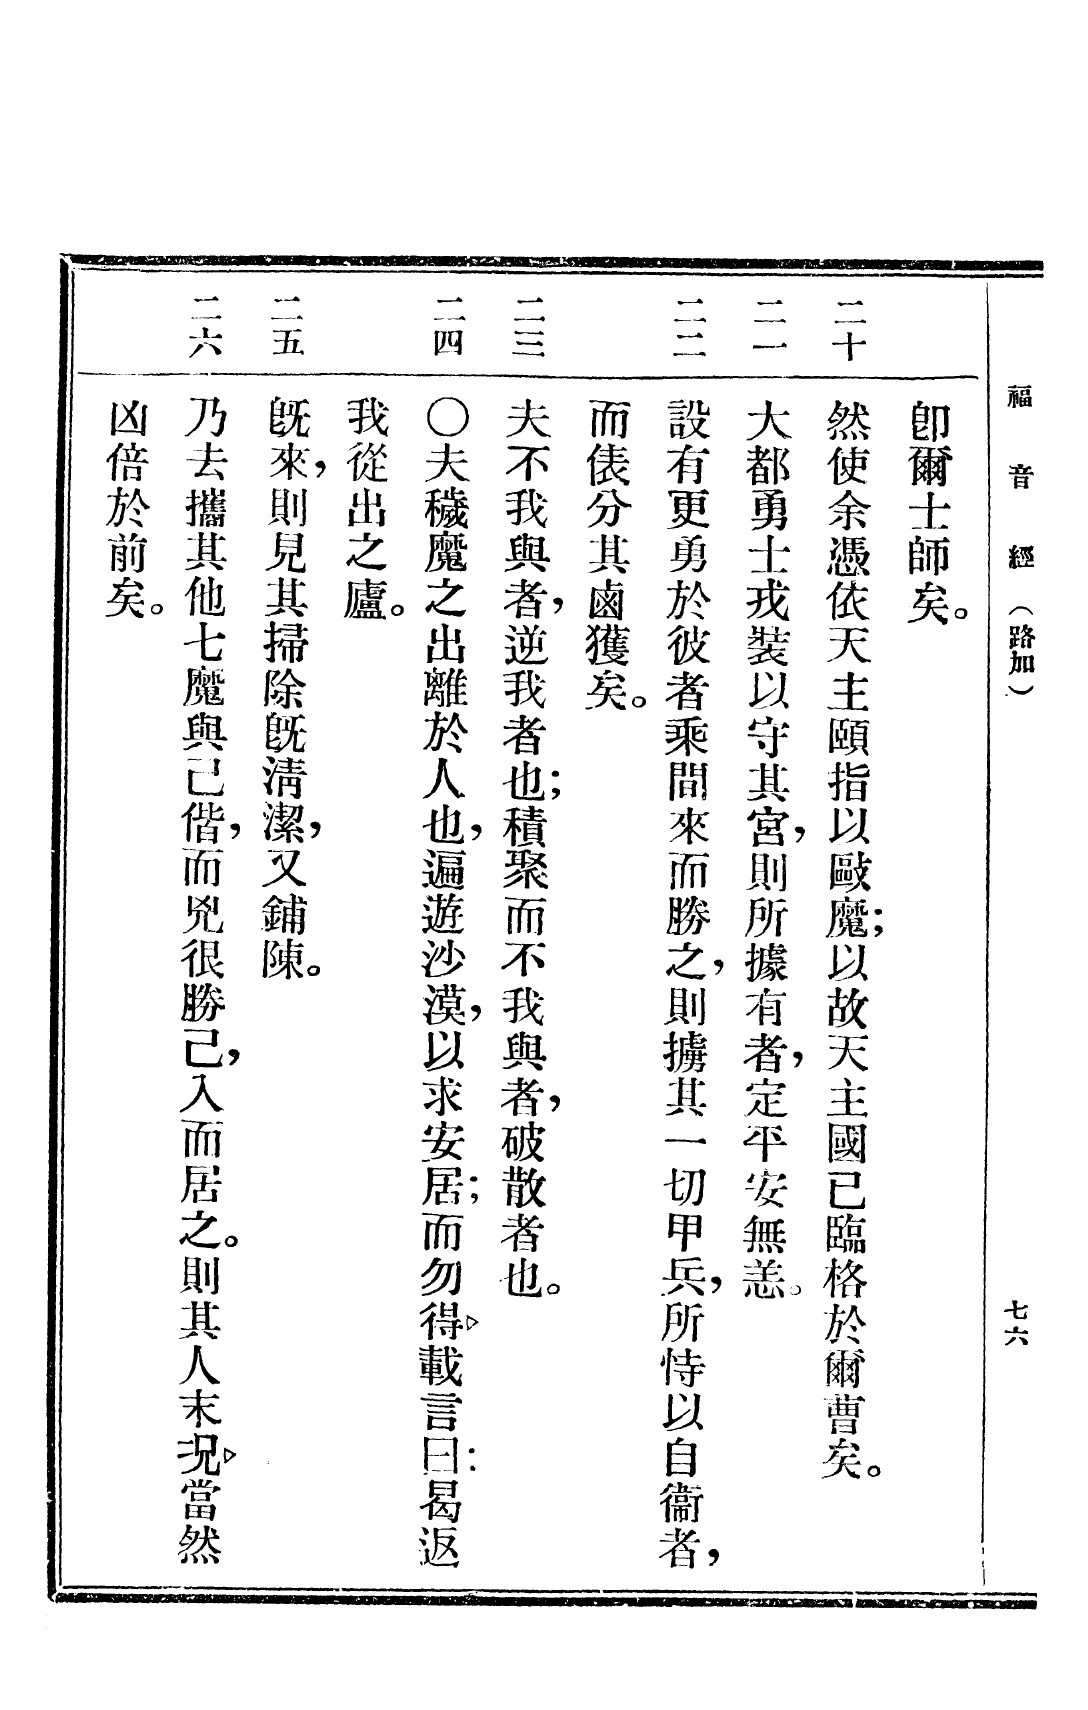 福音經（路加）
七六
卽爾士師矣。
二十
然使余憑依天主頤指以毆魔；以故天主國已臨格於爾曹矣。
二一
大都勇士戎裝以守其宮，則所據有者，定平安無恙。
二二
設有更勇於彼者乘間來而勝之，則擄其一切甲兵，所恃以自衞者，
而俵分其鹵獲矣。
二三
夫不我與者，逆我者也；積聚而不我與者，破散者也。
二四
〇夫穢魔之出離於人也，遍遊沙漠，以求安居；而勿得▷載言曰：曷返
我從出之廬。
二五
旣來，則見其掃除旣淸潔，又鋪陳。
二六
乃去攜其他七魔與己偕，而兇很勝己，入而居之。則其人末况▷當然
凶倍於前矣。